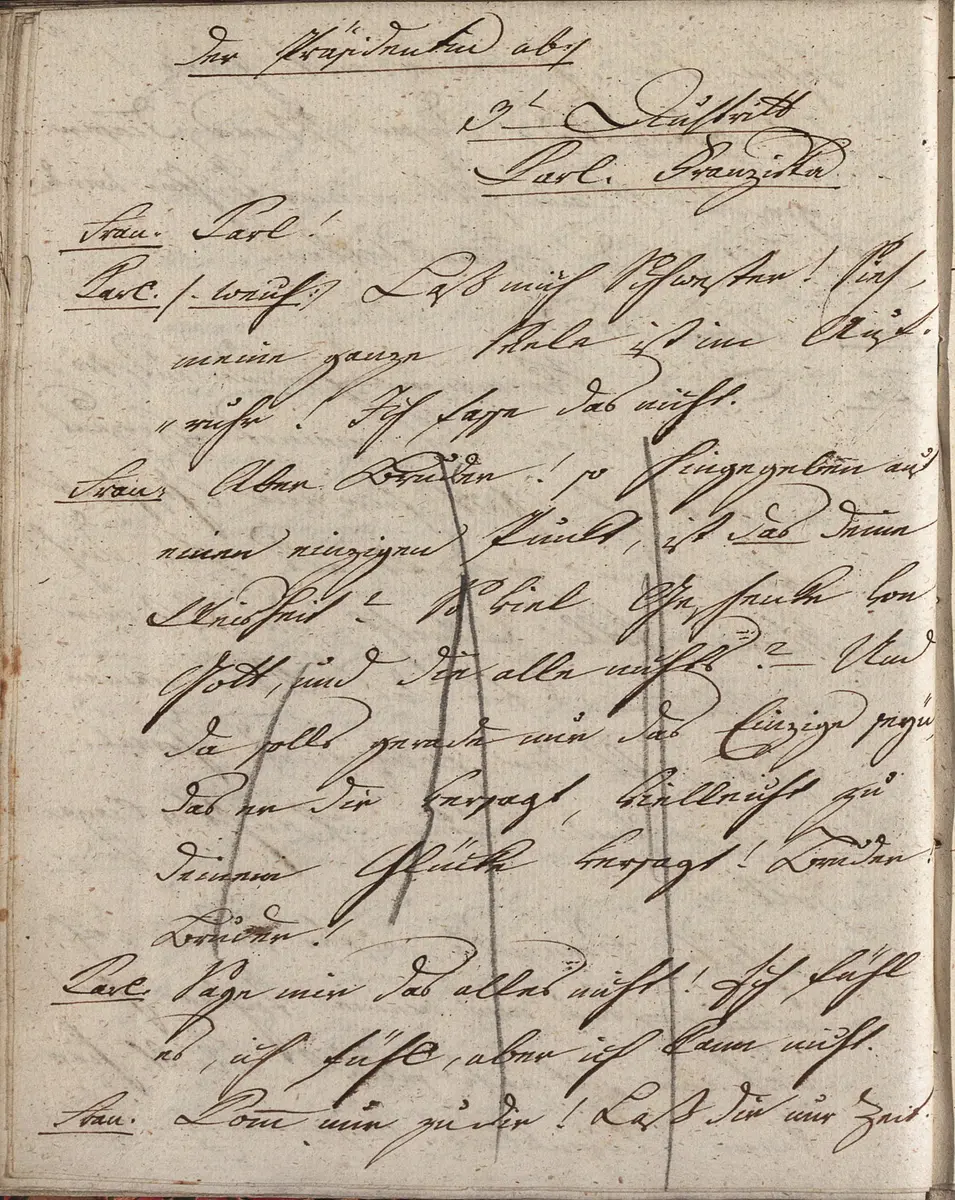 der Präsidentin ab
3t Auftritt
Carl. Franziska
Fran. Carl!
Carl. /: weich :/ Laß mich Schwester! Sieh,
meine ganze Seele ist im Auf¬
"ruhr! Ich fasse das nicht.
Fran. Aber Bruder! so hingegeben auf
einen einzigen Punkt, ist das deine
Weisheit? So viel Geschenke von
Gott, und die alle nichts? – Und
da solls gerade nur das Einzige seyn,
das er dir versagt, vielleicht zu
deinem Glücke versagt! Bruder!
Bruder!
Carl. Sage mir das alles nicht! Ich fühl
es, ich fühle, aber ich kann nicht.
Fran. Kom̅ nur zu dir! Laß dir nur Zeit.